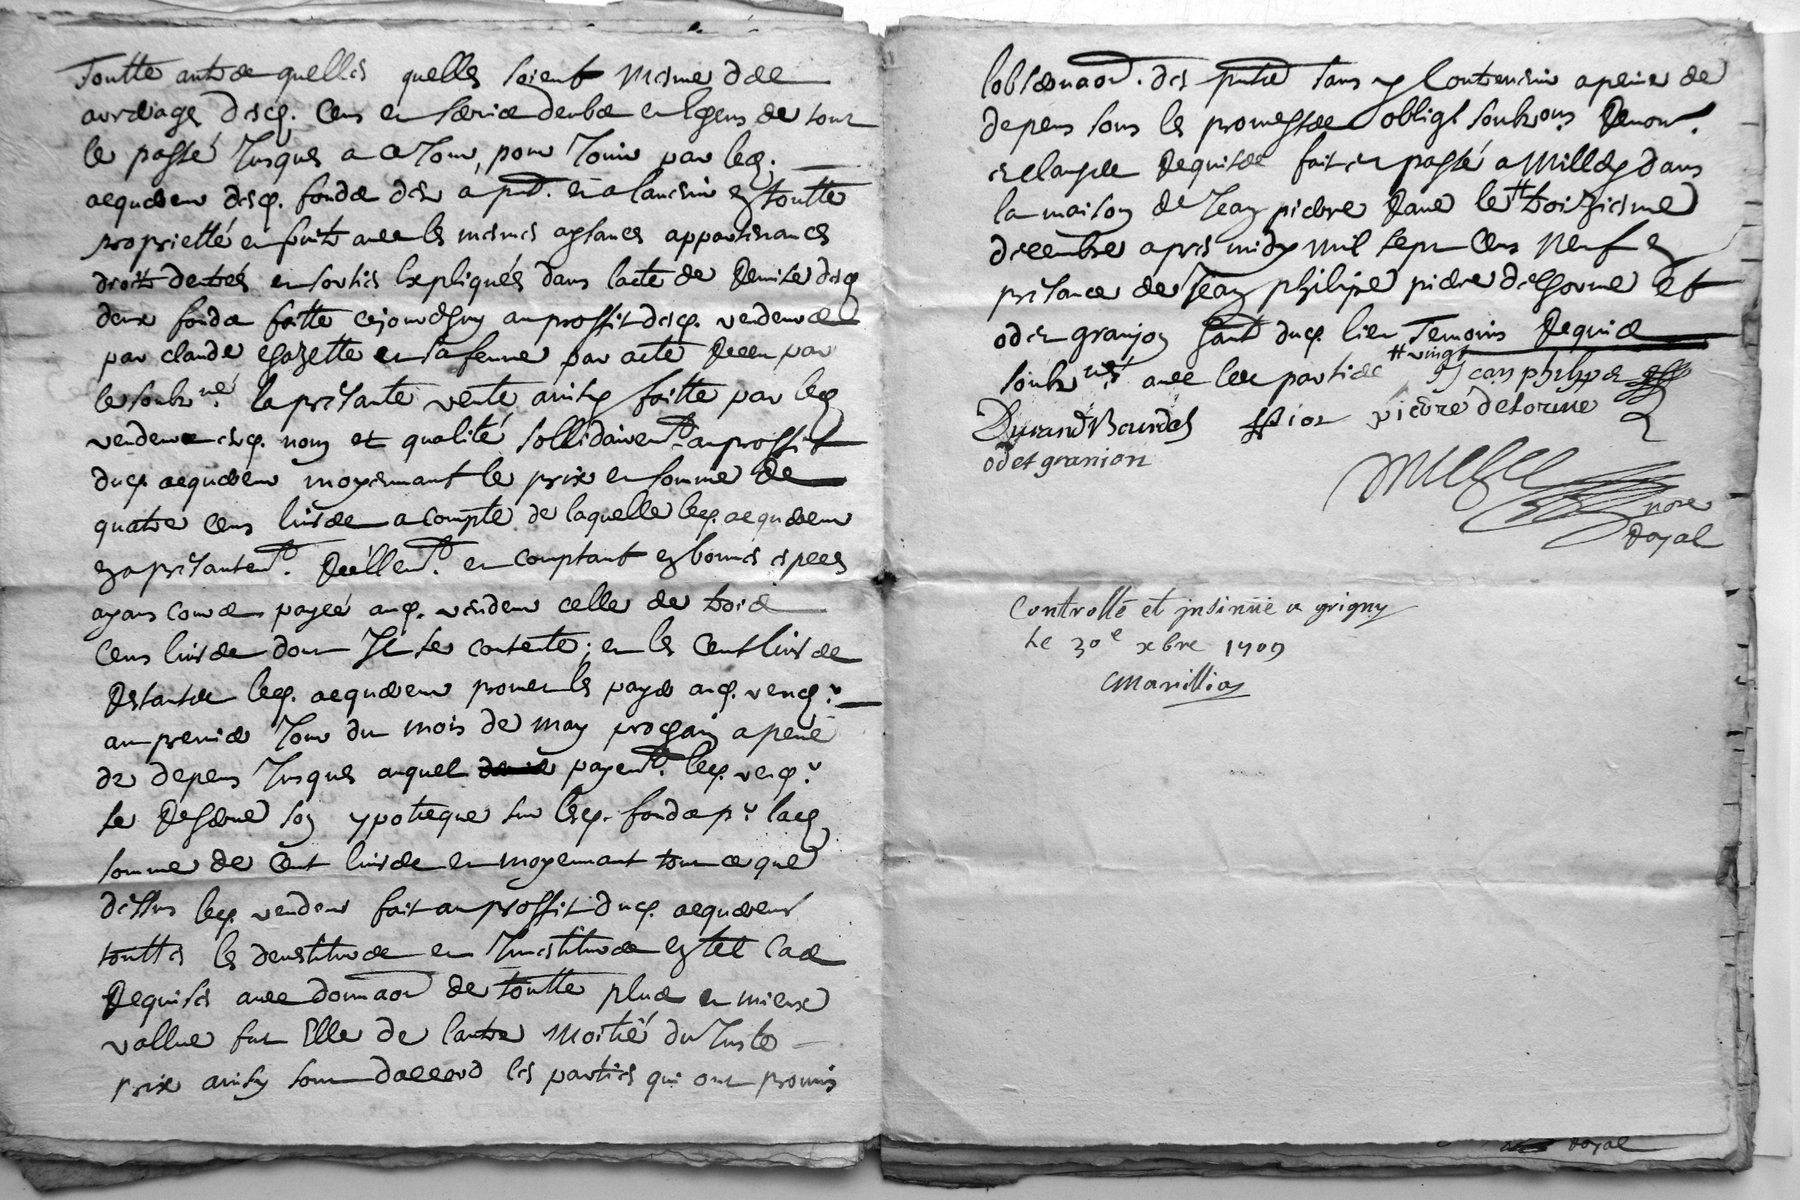 Toutte autre quelles quelles soient mesme des
arrerages desd. cens et servis deubs et escheus de tout
le passé Jusques a ce Jour, pour Jouir par led.
acquereur desd. fonds des a pnt. et a lavenir en toutte
proprietté et fruits avec les mesmes aysances appartenances
droits dentrés et sorties Expliqués dans lacte de Remise desd
deux fonds faitte cejourdhuy au proffit desd. vendeurs
par claude chazette et sa femme par acte Receu par
le soubzné. la présante vente ainsy faitte par led
vendeurs esd. nom et qualité sollidairemt. au proffit
dud. acquereur moyennant le prix et somme de
quatre cens livres a compte de laquelle led. acquereur
en a présantemt. Réellemt. et comptant en bonnes espees
ayans cours payéé aud. vendeur celle de trois
Cens livres dont Il se contente; et les Cent livres
Restantes led. acquereur promet les payer aud. vendr.
au premier Jour du mois de may prochain a peine
de depens Jusques auquel payemt. led. vendr.
se Reserve son ypotheque sur lesd. fonds pr. lad
somme de Cent livres et moyennant tout ce que
dessus led. vendeur fait au proffit dud. acquereur
touttes les devestitures et Investitures en tel cas
Requises avec donnaon de toutte plus et mieux
vallue fut Elle de lautre Moitié du Juste
prix ainsy sont daccord les parties qui ont promis
lobservaon. des pntes sans y Contrevenir a peine de
depens sous les promesses obligs. soubzons. Renonc.
et clauses Requises fait et passé a Millery dans
la maison de Jean pierre Rave le # troizieme
decembre apres midy mil sept Cens Neuf en
présance de Jean philipe pierre delhorme Et
odet granjon dud. lieu Temoins Requis
soubznés avec les parties # vingt
Jean philipe
Durand Bourdel pierre delorme
odet granion
nore
Royal
Controllé et insinüé a grigny
Le 30e xbre 1709
Marillia
Royal